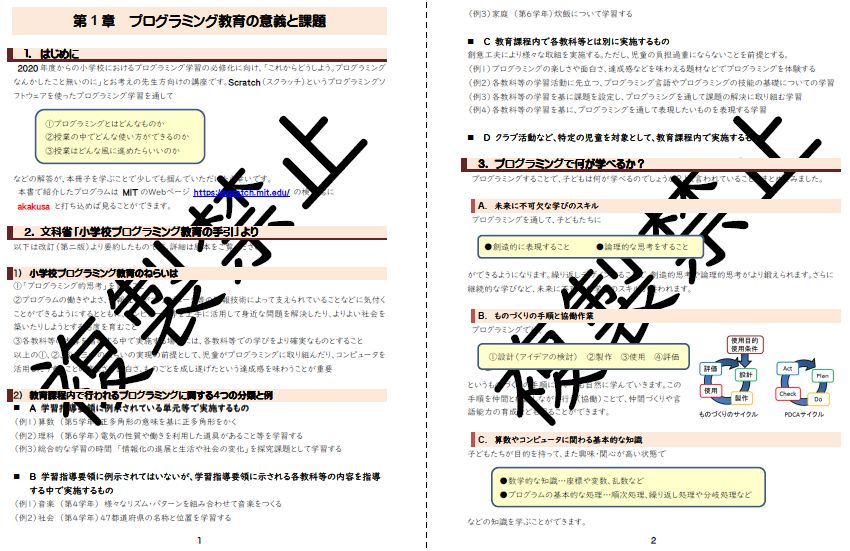 第1章 プログラミング教育の意義と課題
1. はじめに
2020年度からの小学校におけるプログラミング学習の必修化に向け、「これからどうしよう。プログラミング
なんかしたこと無いのに」とお考えの先生方向けの講座です。Scratch(スクラッチ)というプログラミングソ
フトウェアを使ったプログラミング学習を通して
①プログラミングとはどんなものか
②授業の中でどんな使い方ができるのか
③授業はどんな風に進めたらいいのか
などの解答が、本冊子を学ぶことで少しでも掴んでいただ 幸いです。
本書で紹介したプログラムは MIT のWebページ https:// tch.mit.edu/ の検 に
akakusa と打ち込めば見ることができます。
2. 文科省「小学校プログラミング教育の手引」より
以下は改訂(第二版)より要約したもの 詳細は 本をご覧
1) 小学校プログラミング教育のねらいは
①「プログラミング的思考」を こと
②プログラムの働きやよさ、 報技術によって支えられていることなどに気付く
ことができるようにするととも を上手に活用して身近な問題を解決したり、よりよい社会を
築いたりしようとする 度を育むこと
③各教科等の 中で実施する には、各教科等での学びをより確実なものとすること
以上の①、② らいの実現の前提として、児童がプログラミングに取り組んだり、コンピュータを
活用 白さ、 ものごとを成し遂げたという達成感を味わうことが重要
2) 教育課程内で行われるプログラミングに関する4つの分類と例
■ A 学習指導要領に例示されている単元等で実施するもの
(例1)算数 (第5学年)正多角形の意味を基に正多角形をかく
(例2)理科 (第6学年)電気の性質や働きを利用した道具があること等を学習する
(例3)総合的な学習の時間 「情報化の進展と生活や社会の変化」を探究課題として学習する
■ B 学習指導要領に例示されてはいないが、学習指導要領に示される各教科等の内容を指導
する中で実施するもの
(例1)音楽 (第4学年) 様々なリズム・パターンを組み合わせて音楽をつくる
(例2)社会 (第4学年)47都道府県の名称と位置を学習する
1
(例3)家庭 (第6学年)炊飯について学習する
■ C 教育課程内で各教科等とは別に実施するもの
創意工夫により様々な取組を実施する。ただし、児童の負担過重にならないことを前提とする。
(例1)プログラミングの楽しさや面白さ、達成感などを味わえる題材などでプログラミングを体験する
(例2)各教科等の学習活動に先立つ、プログラミング言語やプログラミングの技能の基礎についての学習
(例3)各教科等の学習を基に課題を設定し、プログラミングを通して課題の解決に取り組む学習
(例4)各教科等の学習を基に、プログラミングを通して表現したいものを表現する学習
■ D クラブ活動など、特定の児童を対象として、教育課程内で実施するも
3. プログラミングで何が学べるか?
プログラミングすることで、子どもは何が学べるのでしょうか 言われていること まとめ みました。
A. 未来に不可欠な学びのスキル
プログラミングを通して、子どもたちに
●創造的に表現すること ●論理的な思考をすること
ができるようになります。繰り返し こと 、創造的思考 論理的思考がより鍛えられます。さらに
継続的な学びなど、未来に スキル われます。
B. ものづくりの手順と協働作業
プログラミングで
①設計(アイデアの検討) ②製作 ③使用 ④評価
というものづ の手順に も自然に学んでいきます。この
手順を仲間と しながら行 (協働)ことで、仲間づくりや言
語能力の育成 ることができます。
使用目的
使用条件
評価
設計
使用
製作
ものづくりのサイクル
Act
Plan
Check
Do
PDCAサイクル
C. 算数やコンピュータに関わる基本的な知識
子どもたちが目的を持って、また興味・関心が高い状態で
●数学的な知識…座標や変数、乱数など
●プログラムの基本的な処理…順次処理、繰り返し処理や分岐処理など
などの知識を学ぶことができます。
2
複製禁止
複製禁止